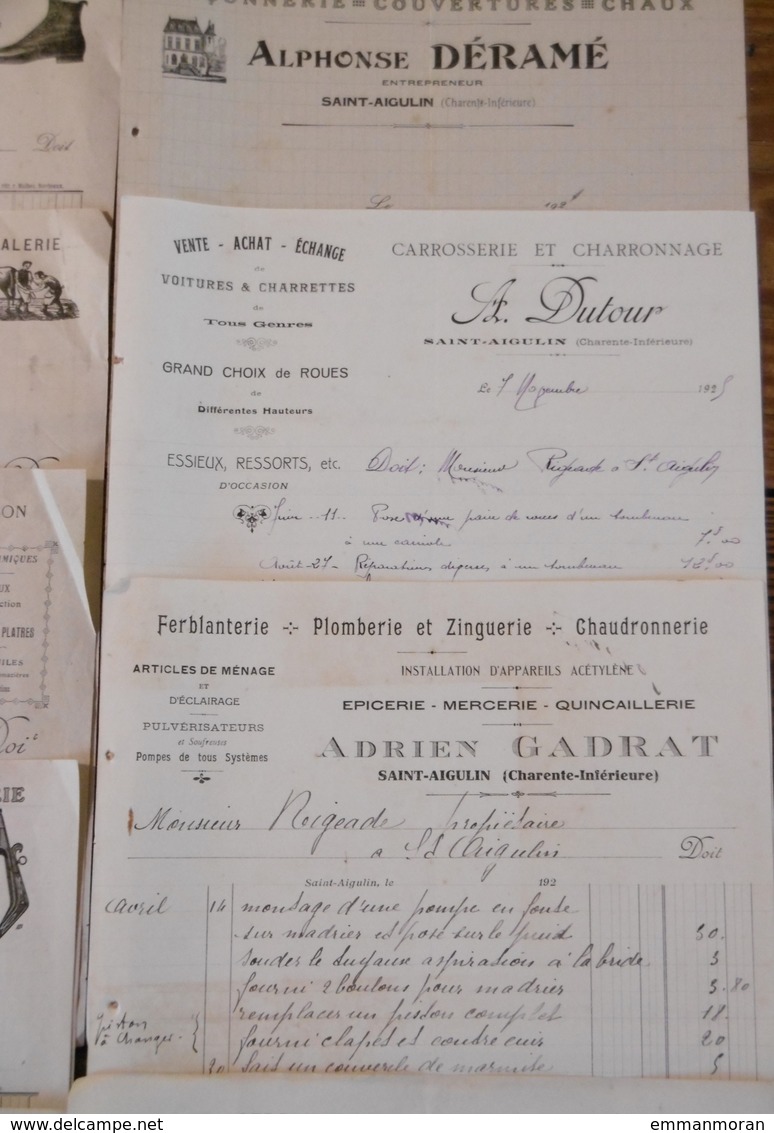 ONNERIE COUVERTURES CHAUX
ALPHONSE DÉRAMÉ
ENTREPRENEUR
SAINT-AIGULIN (Charente-Inférieure)
Le 192
Doit
ALERIE
ON
MIQUES
UX
ction
PLATRES
UILES
Doit
RIE
VENTE - ACHAT - ÉCHANGE
de
VOITURES & CHARRETTES
de
Tous Genres
GRAND CHOIX de ROUES
de
Différentes Hauteurs
ESSIEUX, RESSORTS, etc.
D'OCCASION
CARROSSERIE ET CHARRONNAGE
A. Dutour
SAINT-AIGULIN (Charente-Inférieure)
Le 7 Novembre 1925
Doit: Monsieur Rigeade a St Aigulin
Juin 11 Pose d'une paire de roues d'un tombereau
à une carriole 7f00
Août-27- Réparations diverses à un tombereau 12f00
Ferblanterie -:- Plomberie et Zinguerie -:- Chaudronnerie
ARTICLES DE MÉNAGE
ET
D'ÉCLAIRAGE
PULVÉRISATEURS
et Soufreuses
Pompes de tous Systèmes
INSTALLATION D'APPAREILS ACÉTYLÈNE
EPICERIE - MERCERIE - QUINCAILLERIE
ADRIEN GADRAT
SAINT-AIGULIN (Charente-Inférieure)
Monsieur Rigeade propiétaire
a St Aigulin Doit
Saint-Aigulin, le 192
avril 14 montage d'une pompe en fonte
sur madrier et posé sur le puid 30.
souder le tuyaux aspirasion à la bride 3
fourni 2 boulons pour madrier 3.80
remplacer un piston complet 18.
piston à changer fourni clapets et contre cuir 20
20 fait un couvercle de marmite 5
delcampe.net
emmanmoran